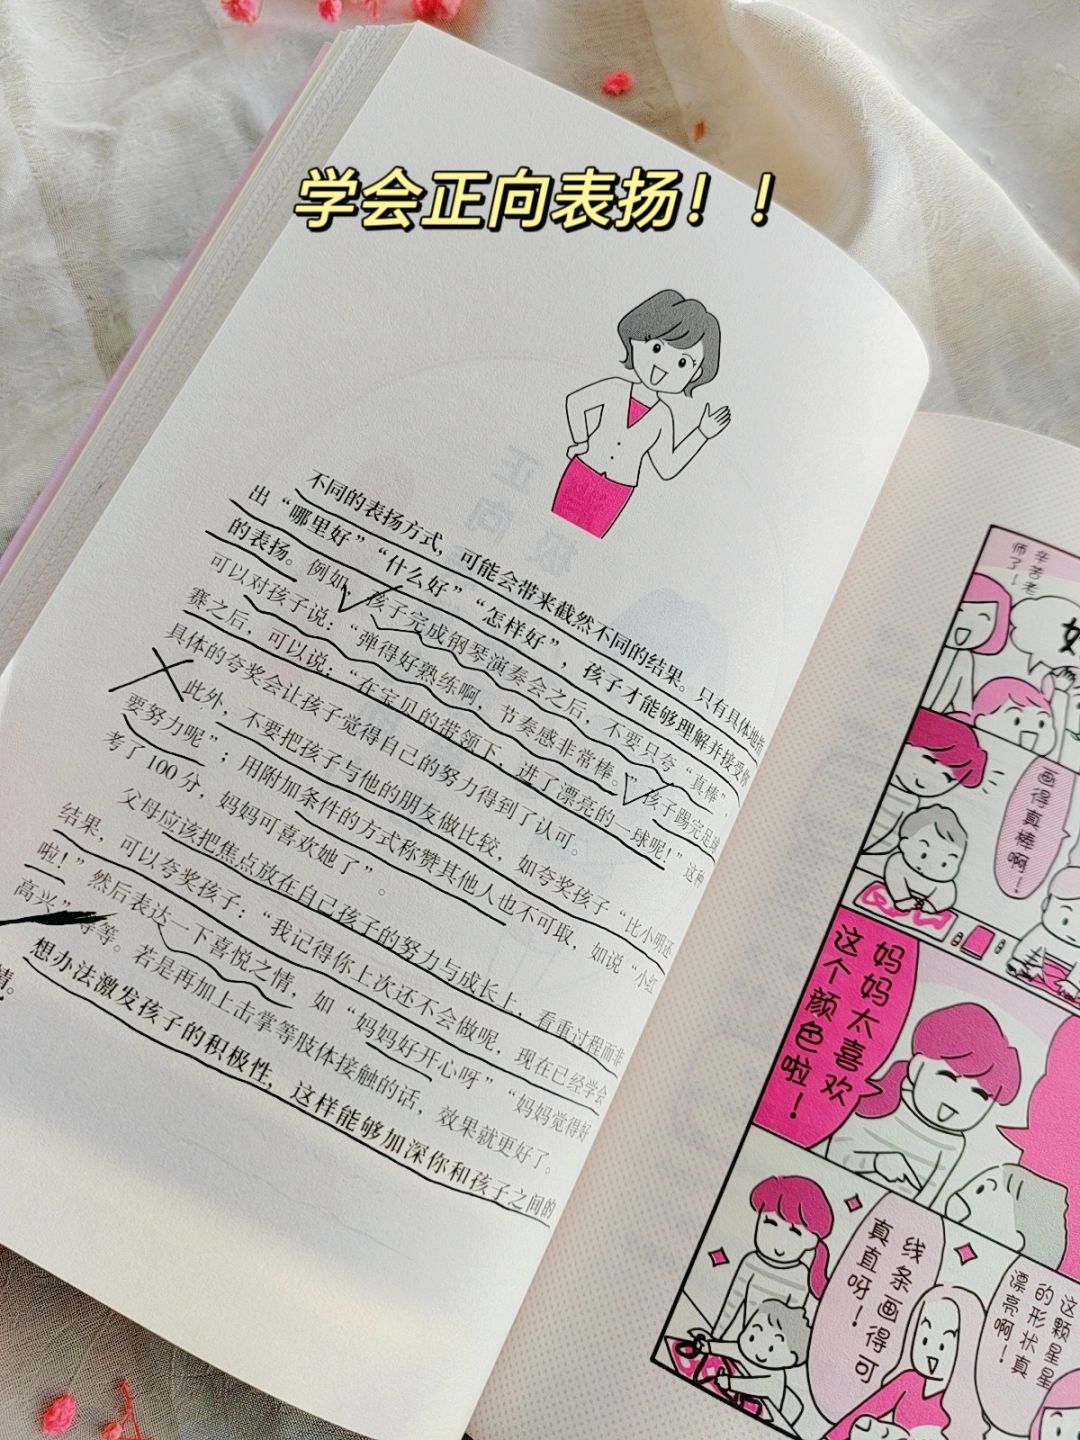 学会正向表扬！！
不同的表扬方式，可能会带来截然不同的结果。只有具体地指
出“哪里好”“什么好”“怎样好”，孩子才能够理解并接受你
的表扬。例如，孩子完成钢琴演奏会之后，不要只夸“真棒”，
可以对孩子说：“弹得好熟练啊，节奏感非常棒。”孩子踢完足球
赛之后，可以说：“在宝贝的带领下，进了漂亮的一球呢！”这种
具体的夸奖会让孩子觉得自己的努力得到了认可。
此外，不要把孩子与他的朋友做比较，如夸奖孩子“比小明还
要努力呢”；用附加条件的方式称赞其他人也不可取，如说“小红
考了100分，妈妈可喜欢她了”。
父母应该把焦点放在自己孩子的努力与成长上，看重过程而非
结果，可以夸奖孩子：“我记得你上次还不会做呢，现在已经学会
啦！”然后表达一下喜悦之情，如“妈妈好开心呀”“妈妈觉得好
高兴”等等。若是再加上击掌等肢体接触的话，效果就更好了。
想办法激发孩子的积极性，这样能够加深你和孩子之间的
情。
辛苦老
师了！
画得真棒啊！
妈妈太喜欢
这个颜色啦！
线条画得可
真直呀！
这颗星星
的形状真
漂亮啊！